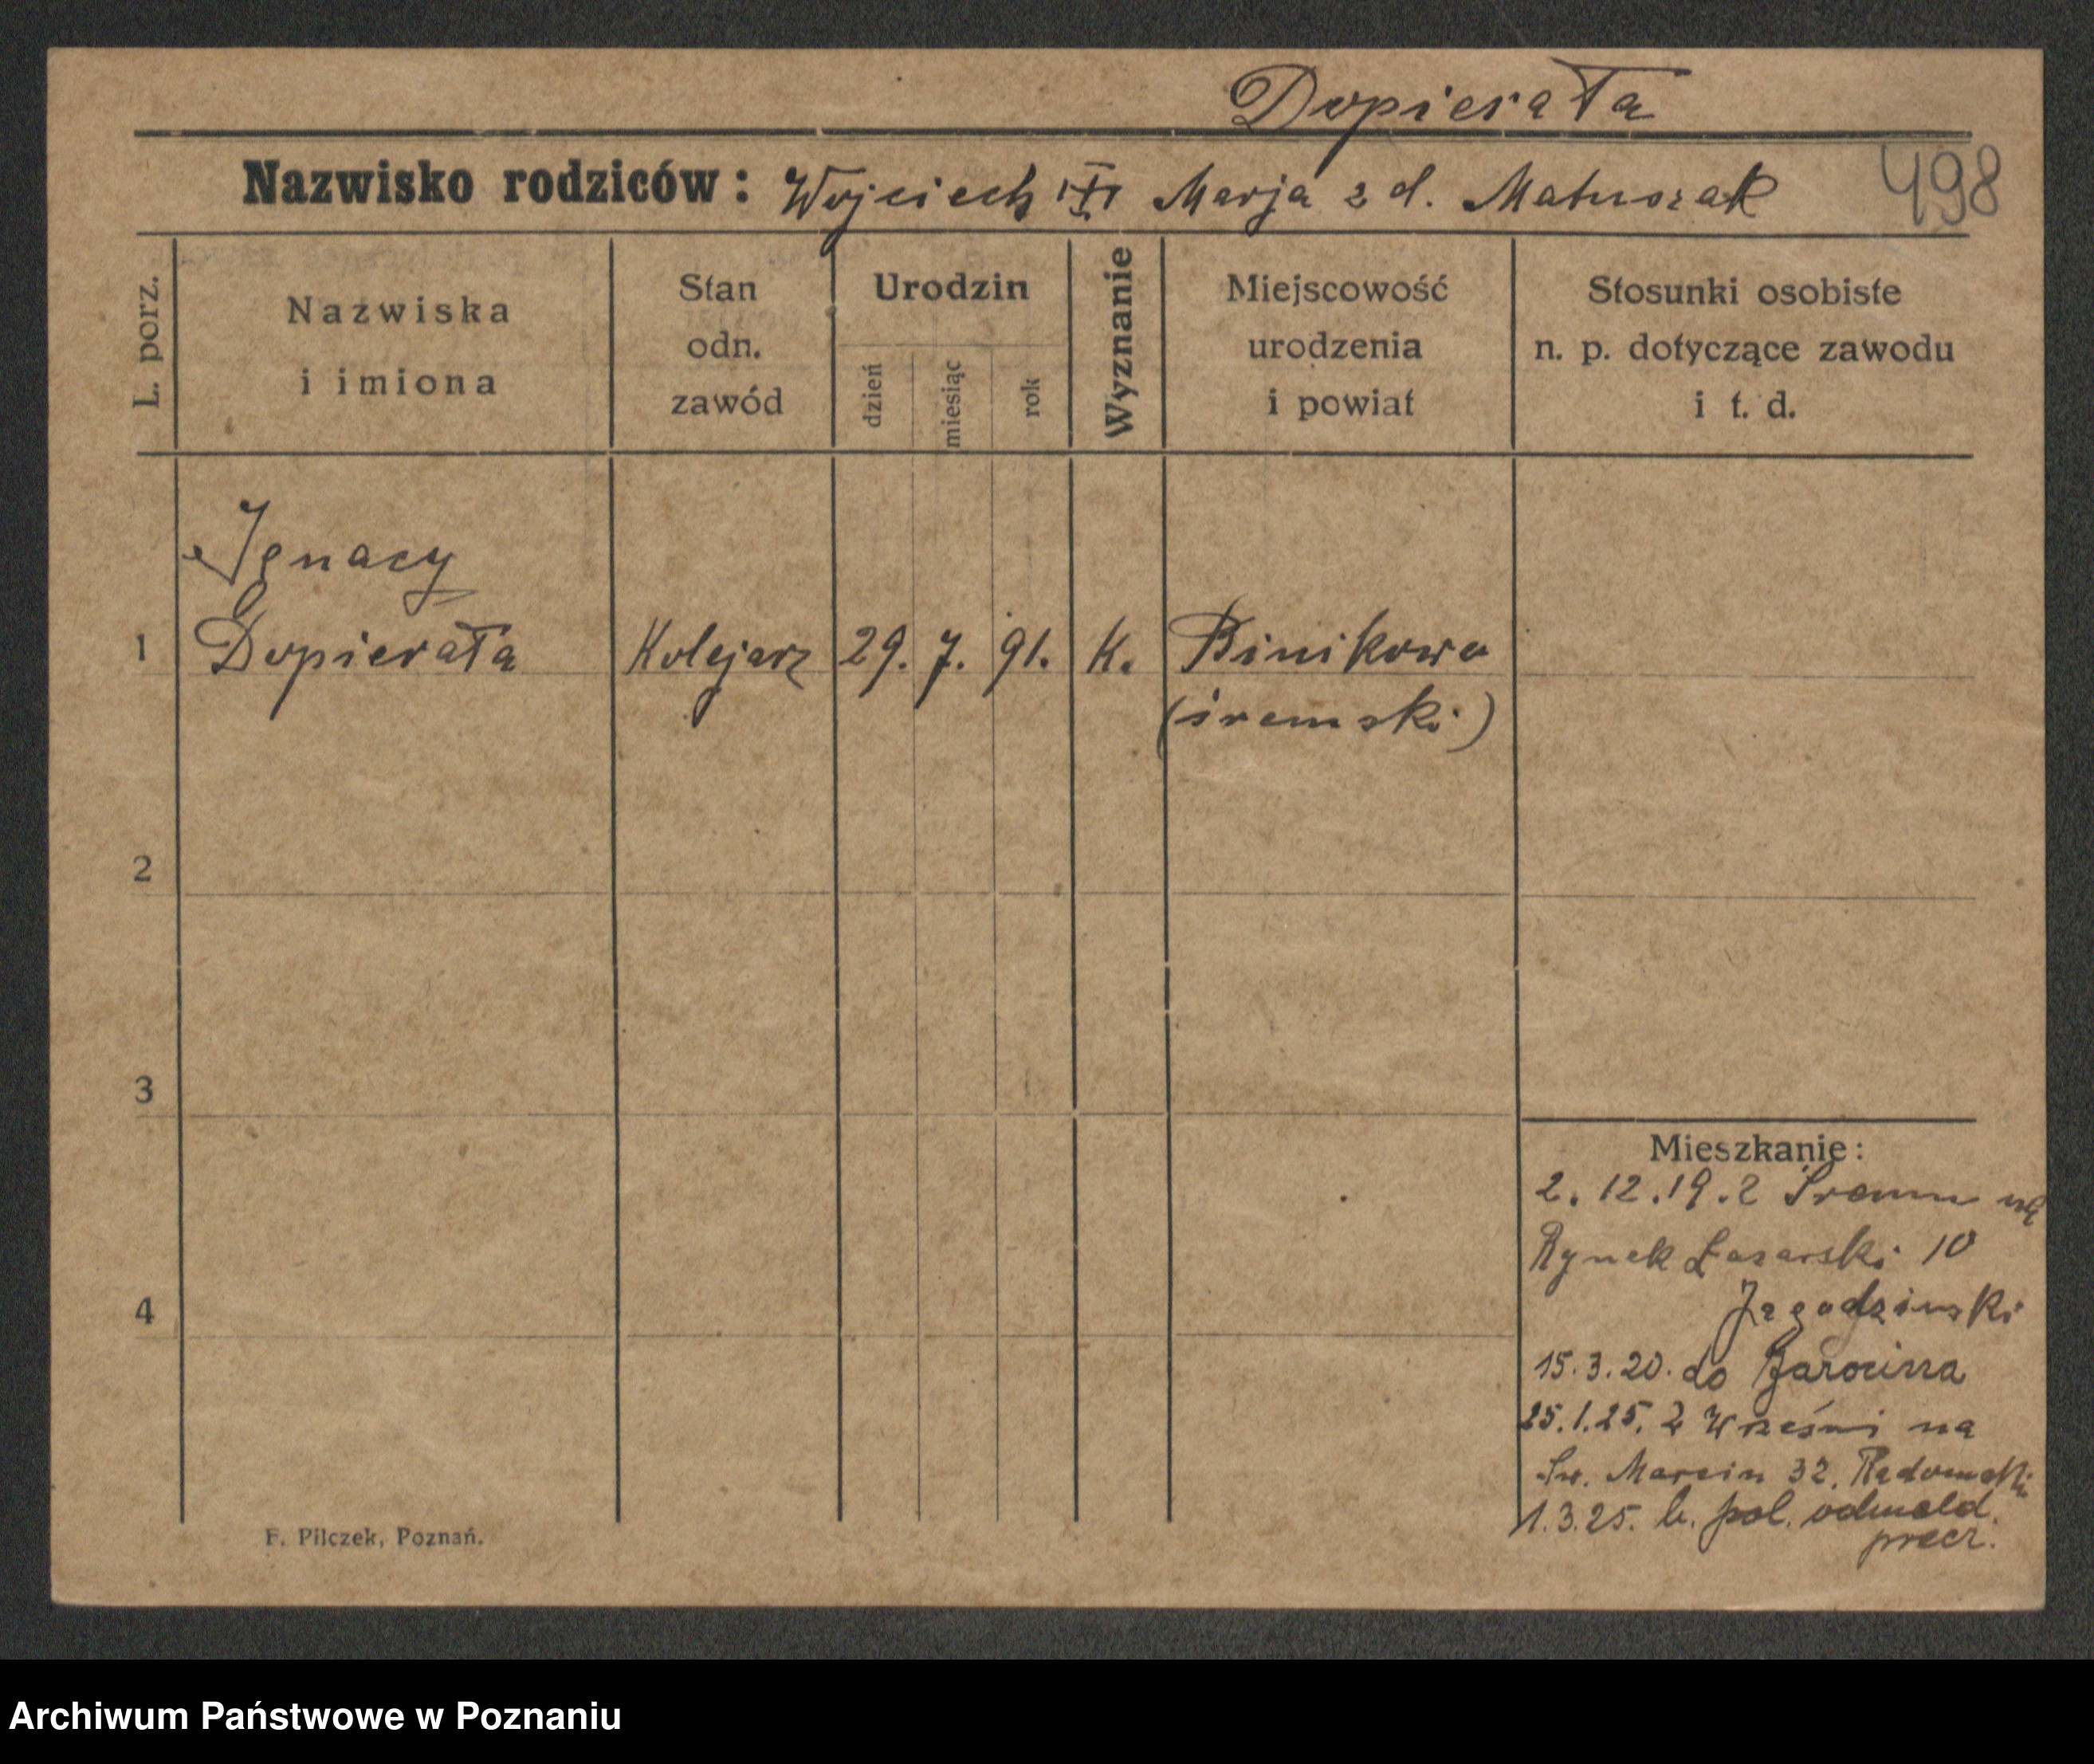 Dopierała
Nazwisko rodziców: Wojciech Marja z d. Matuszak
498
L. porz.
Nazwiska
i imiona
Stan
odn.
zawód
Urodzin
dzień
miesiąc
rok
Wyznanie
Miejscowość
urodzenia
i powiat
Stosunki osobiste
n. p. dotyczące zawodu
i t. d.
Ignacy
1 Dopierała Kolejarz 29. 7. 91. K. Binikowo
(śremski)
2
3
4
Mieszkanie:
2.12.19. z Śremu na
Rynek Łazarski 10
Jagodzinski
15.3.20. do Jarocina
25.1.25. z Wrześni na
Św. Marcin 32. Radomski
1.3.25. b. pol. odmeld.
precz.
F. Pilczek, Poznań.
Archiwum Państwowe w Poznaniu